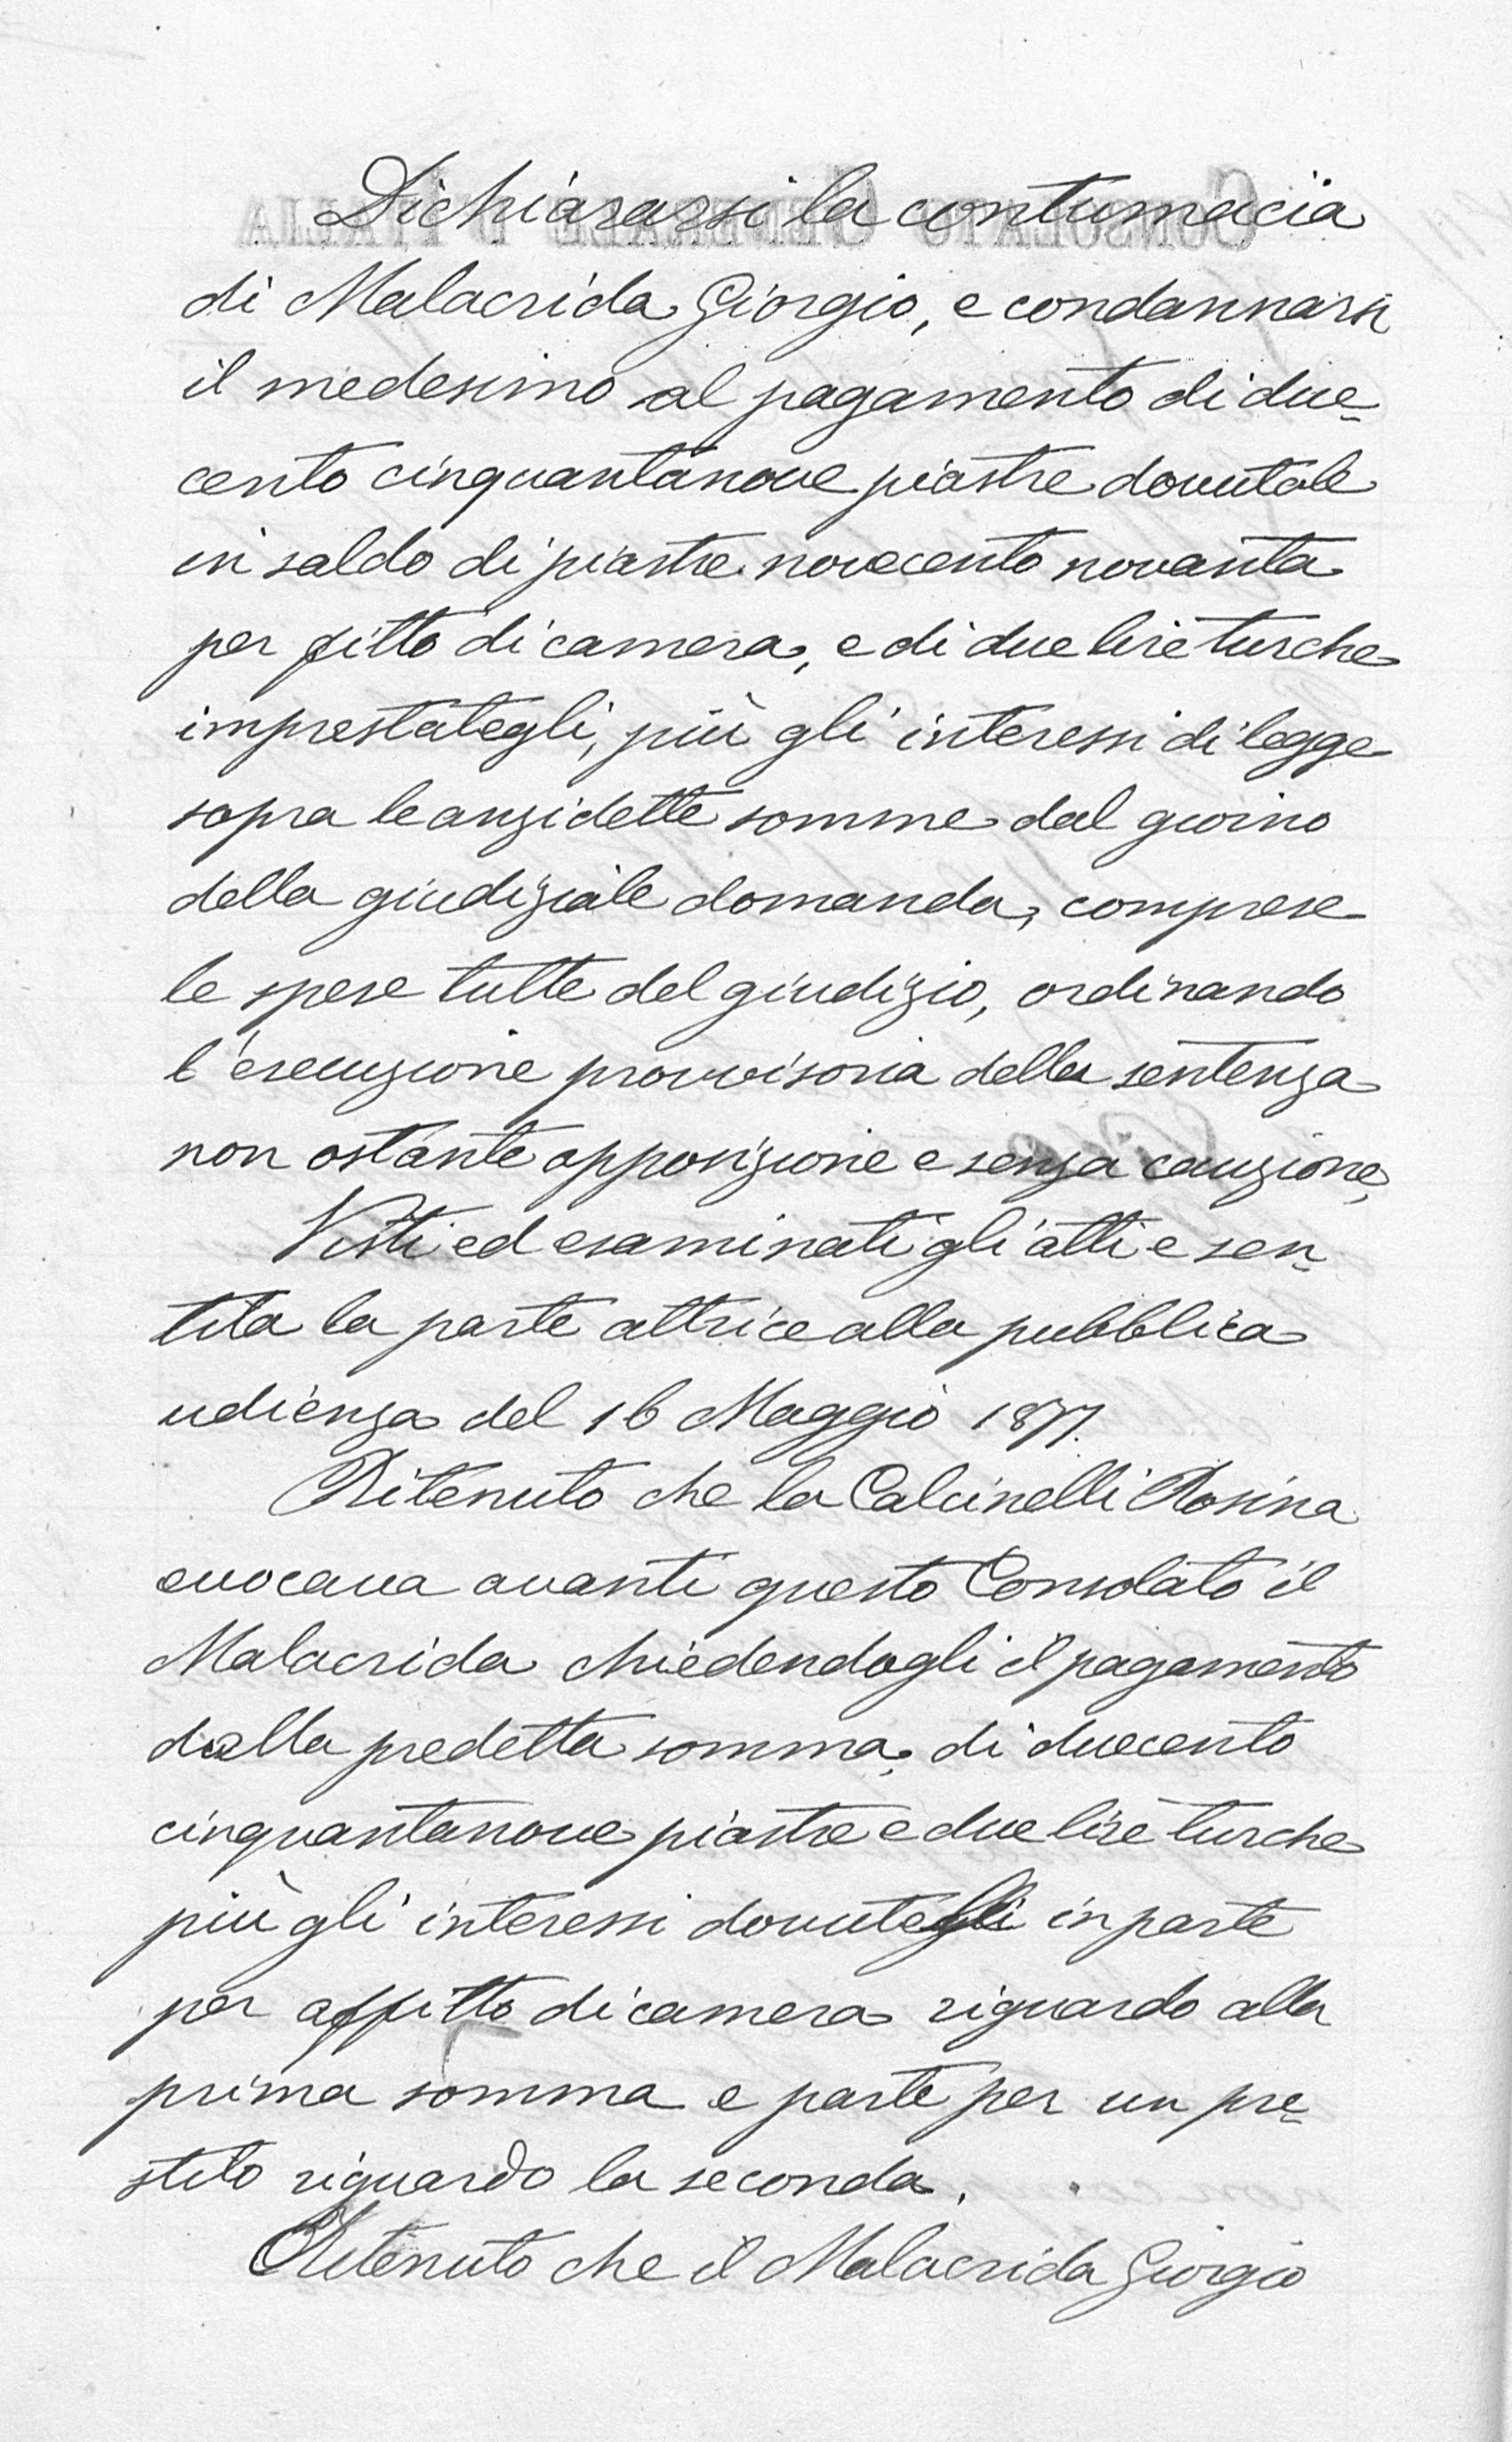 Dichiararsi la contumacia
di Malacrida Giorgio, e condannarsi
il medesimo al pagamento di due-
cento cinquantanove piastre dovutale
in saldo di piastre novecento novanta
per fitto di camera, e di due lire turche
imprestategli, più gli interessi di legge
sopra le anzidette somme dal giorno
della giudiziale domanda, comprese
le spese tutte del giudizio, ordinando
l'esecuzione provvisoria della sentenza
non ostante opposizione e senza cauzione,
Visti ed esaminati gli atti e sen-
tita la parte attrice alla pubblica
udienza del 16 Maggio 1877.
Ritenuto che la Calcinelli Rosina
evocava avanti questo Consolato il
Malacrida chiedendogli il pagamento
della predetta somma, di duecento
cinquantanove piastre e due lire turche
più gli interessi dovutegli in parte
per affitto di camera riguardo alla
prima somma e parte per un pre-
stito riguardo la seconda.
Ritenuto che il Malacrida Giorgio